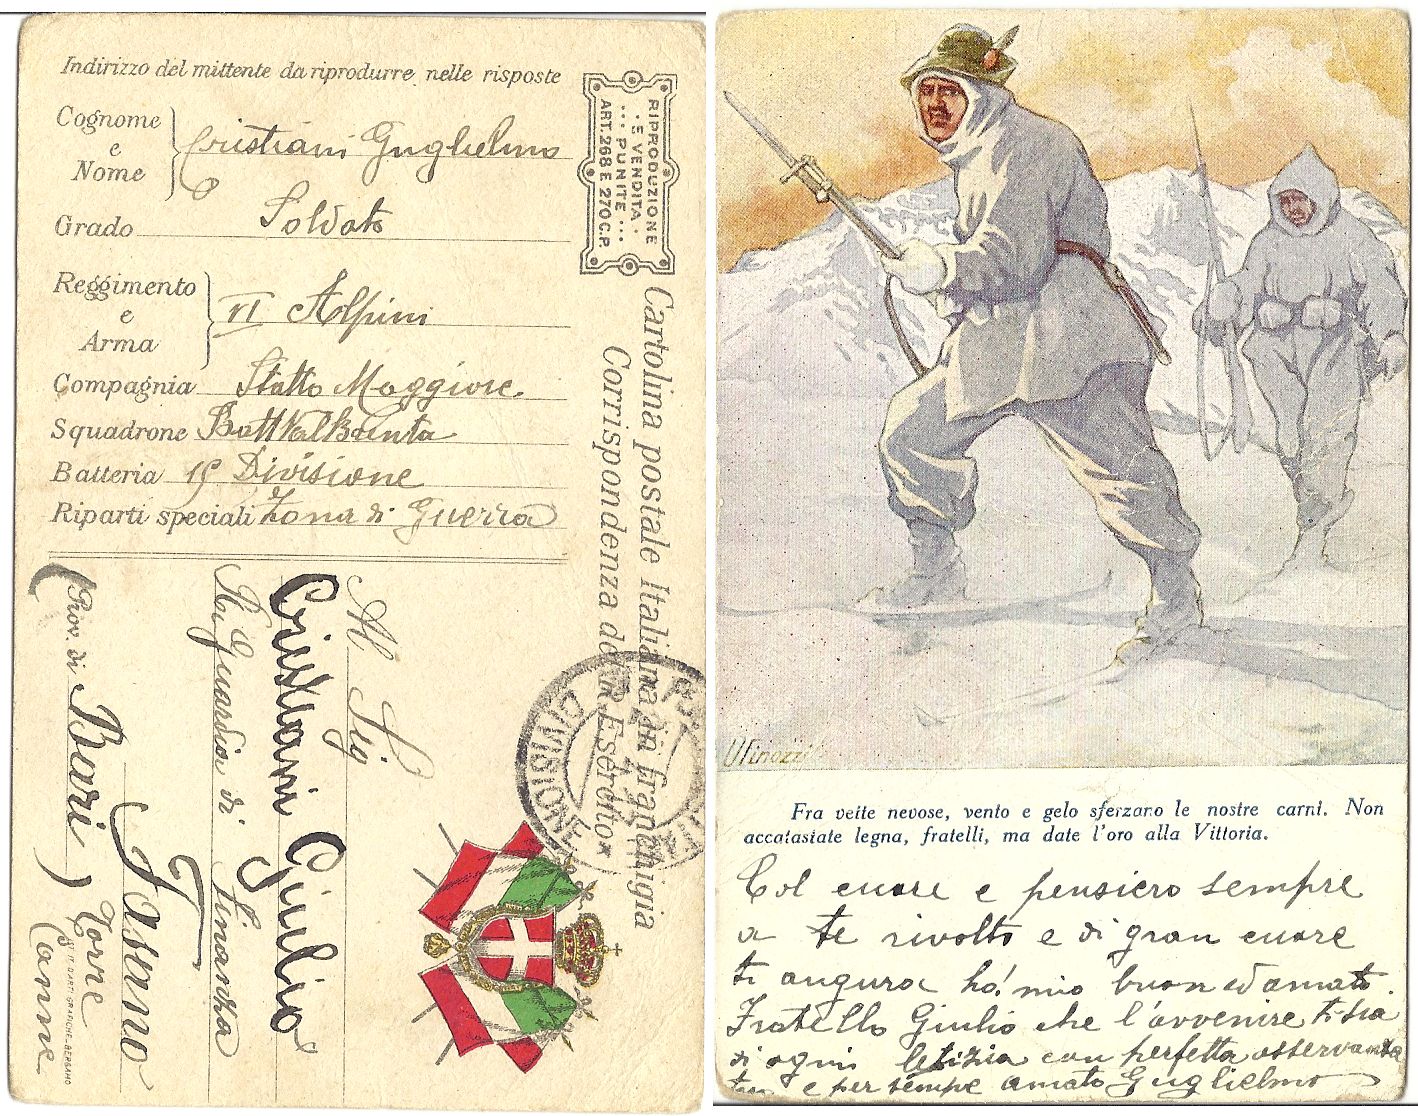 Indirizzo del mittente da riprodurre nelle risposte
Cognome
e
Nome
Cristiani Guglielmo
Grado Soldato
Reggimento
e
Arma
VI Alpini
Compagnia Statto Maggiore
Squadrone Batt Val Brenta
Batteria 15 Divisione
Riparti speciali Zona di Guerra
RIPRODUZIONE
E VENDITA
PUNITE
ART. 268 E 270 C.P.
Cartolina postale Italiana in franchigia
Corrispondenza del R. Esercito
DIVISIONE
Al Sig
Cristiani Giulio
R. Guardia di Finanza
Fasano
(Prov. di Bari) Torre
Canne
ARTI GRAFICHE - BERGAMO
V Finozzi
Fra vette nevose, vento e gelo sferzano le nostre carni. Non
accatastate legna, fratelli, ma date l'oro alla Vittoria.
Col cuore e pensiero sempre
a te rivolto e di gran cuore
ti auguro ho! mio buon ed amato
Fratello Giulio che l'avvenire ti sia
di ogni letizia con perfetta osservanza
tuo e per sempre amato Guglielmo